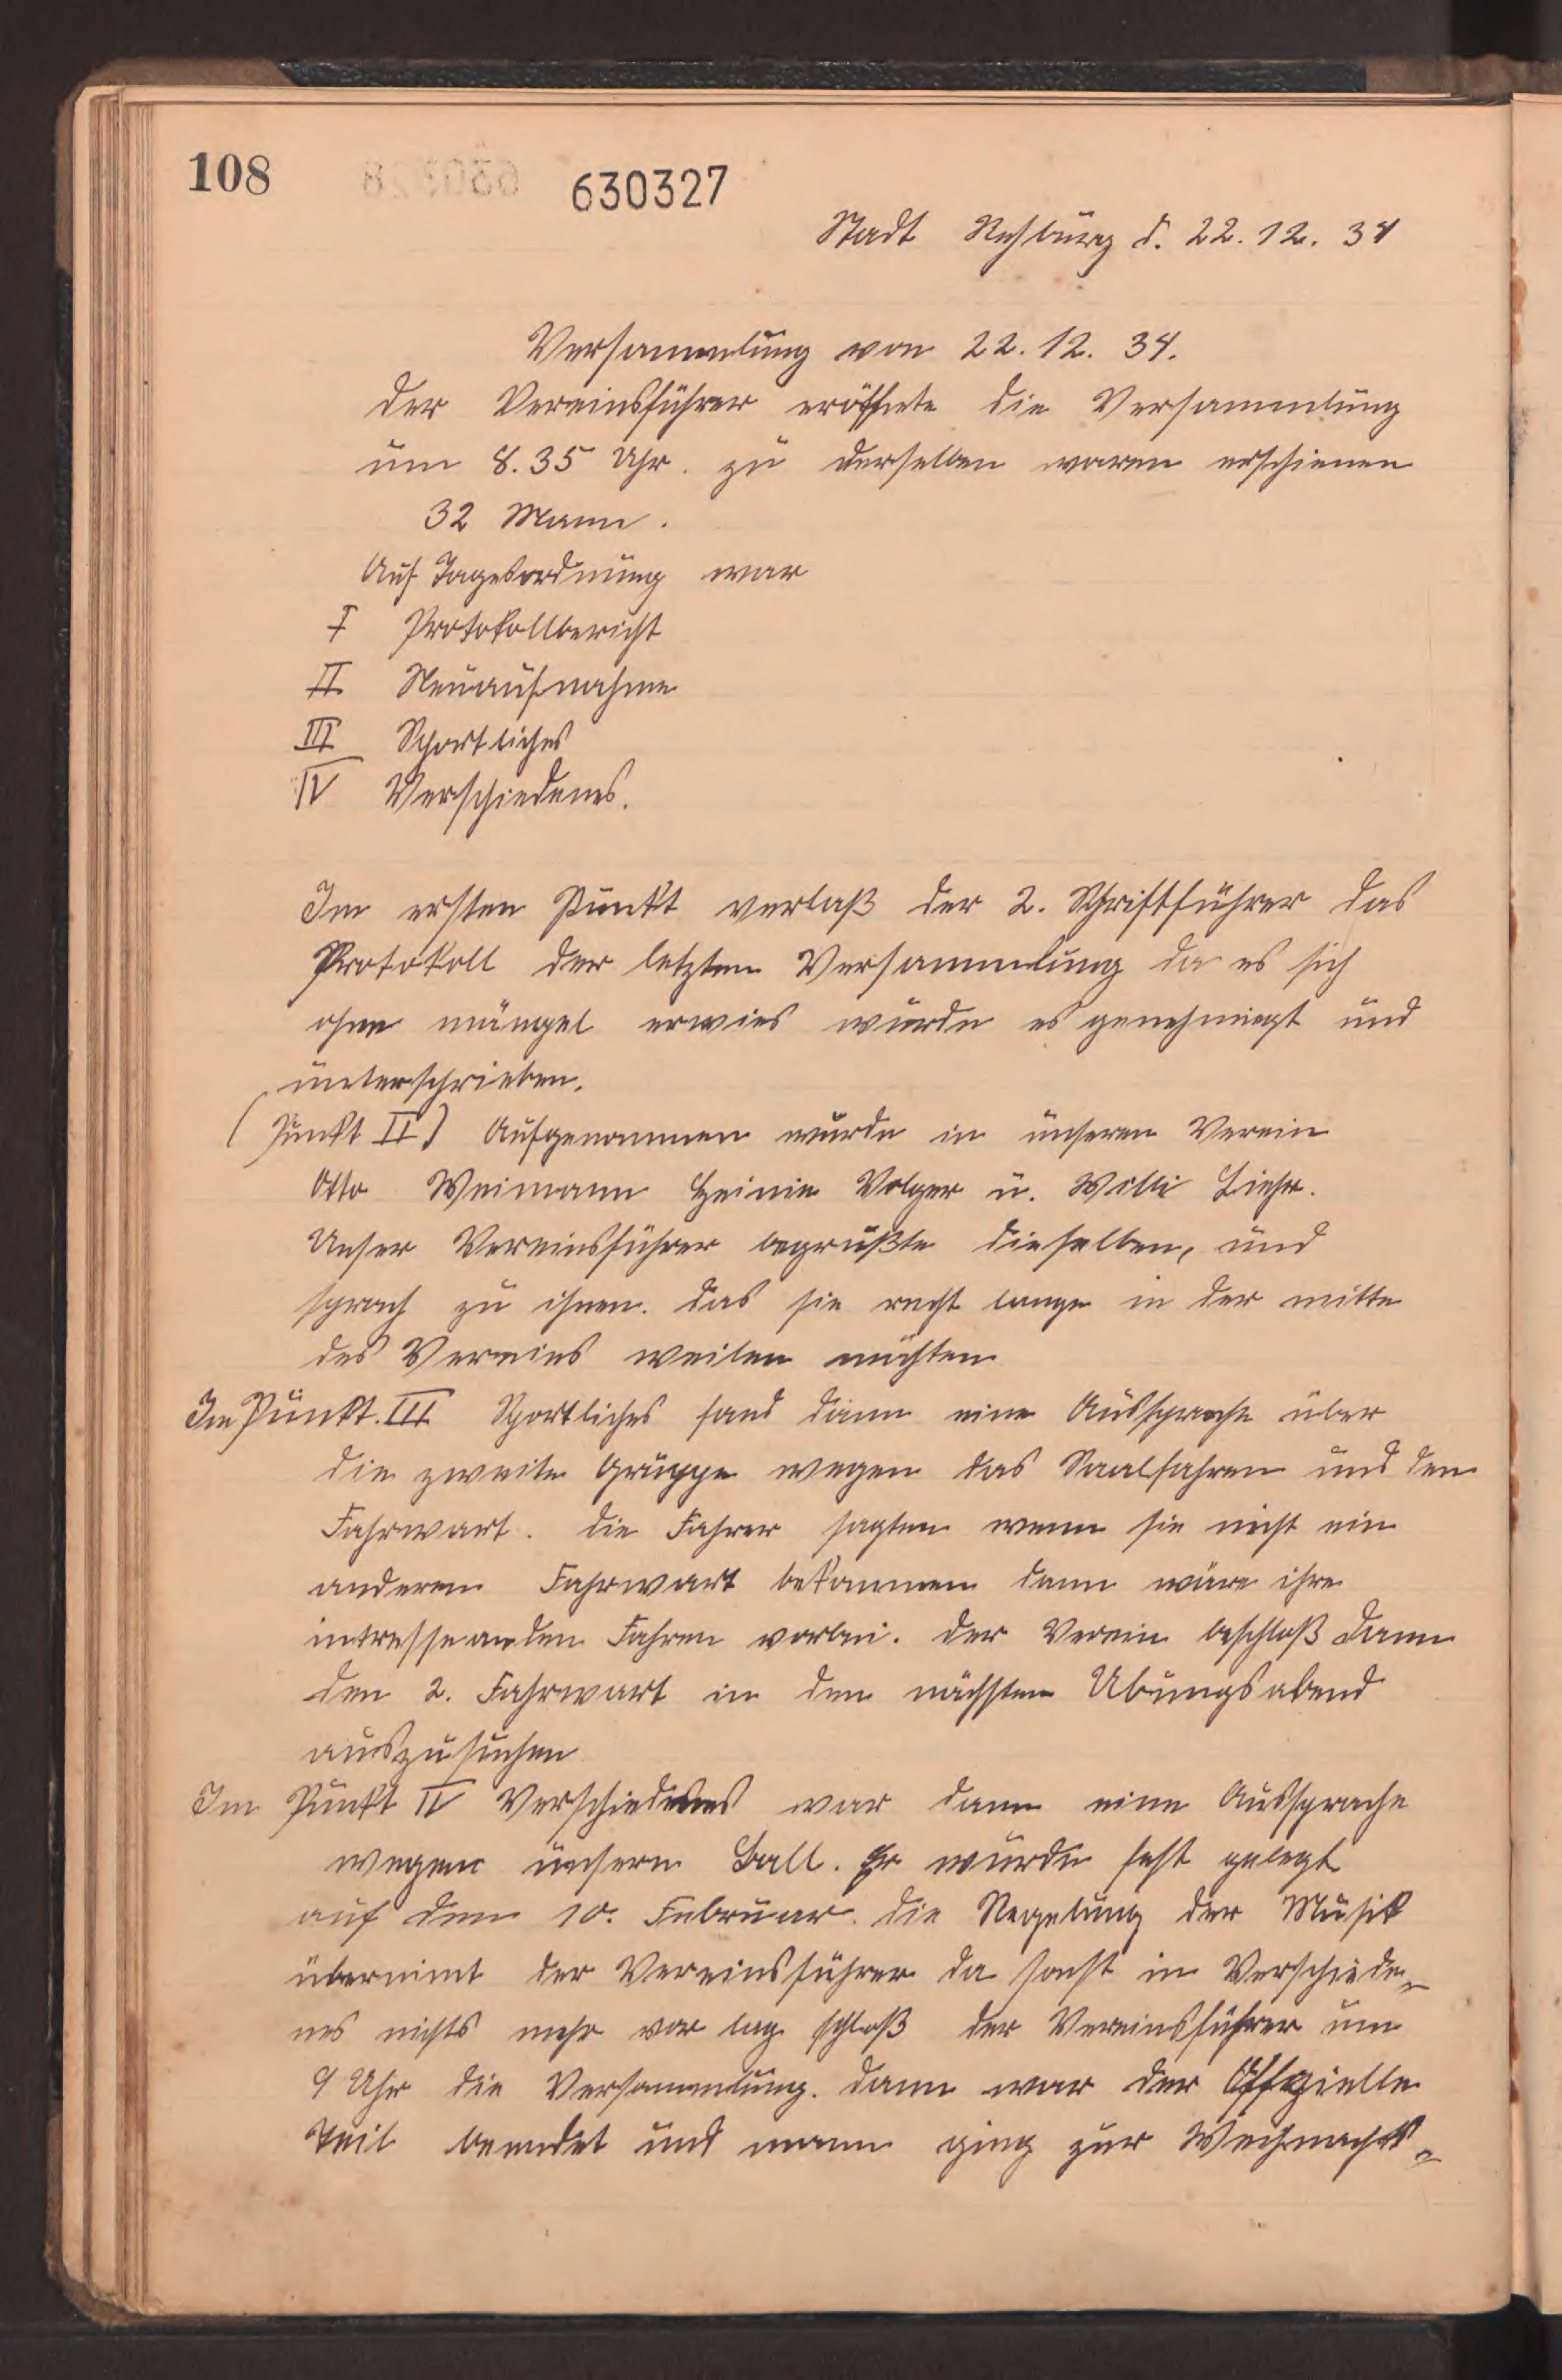 108
630327
Stadt Rehburg d. 22.12.34
Versammlung von 22.12.34.
Der Vereinsführer eröffnete die Versammlung
um 8.35 Uhr. zu derselben waren erschienen
32 Mann.
Auf Tagesordnung war
I Protokollbericht
II Neuaufnahme
III Sportliches
IV Verschiedenes.
Im ersten Punkt verlaß der 2. Schriftführer das
Protokoll der letzten Versammlung da es sich
ohne mängel erwies wurde es genehmiegt und
unterschrieben.
(Punkt II) Aufgenommen wurde in unseren Verein
Otto Weimann Heinie Volger u. Willi
Unser Vereinsführer begrüßte dieselben, und
sprach zu ihnen. das sie recht lange in der mitte
des Vereins weilen möchten
Im Punkt. III Sportliches fand dann eine Aussprache über
die zweite Gruppe wegen das Saalfahren und den
Fahrwart. Die Fahrer sagten wenn sie nicht ein
anderen Fahrwart bekommen dann wäre ihre
intresse an den Fahren vorbei. Der Verein beschloß dann
den 2. Fahrwart in den nächsten Übungsabend
auszusuchen
Im Punkt IV Verschiedenes war dann eine Aussprache
wegen unsern Ball. Er wurde fest gelegt
auf dem 10. Februar. die Regelung der Musik
übernimt der Vereinsführer da sonst in Verschiede-
nes nichts mehr vor lag schloß der Vereinsführer um
9 Uhr die Versammlung. Dann war der Offizielle
Teil beendet und mann ging zur Weihnachts-